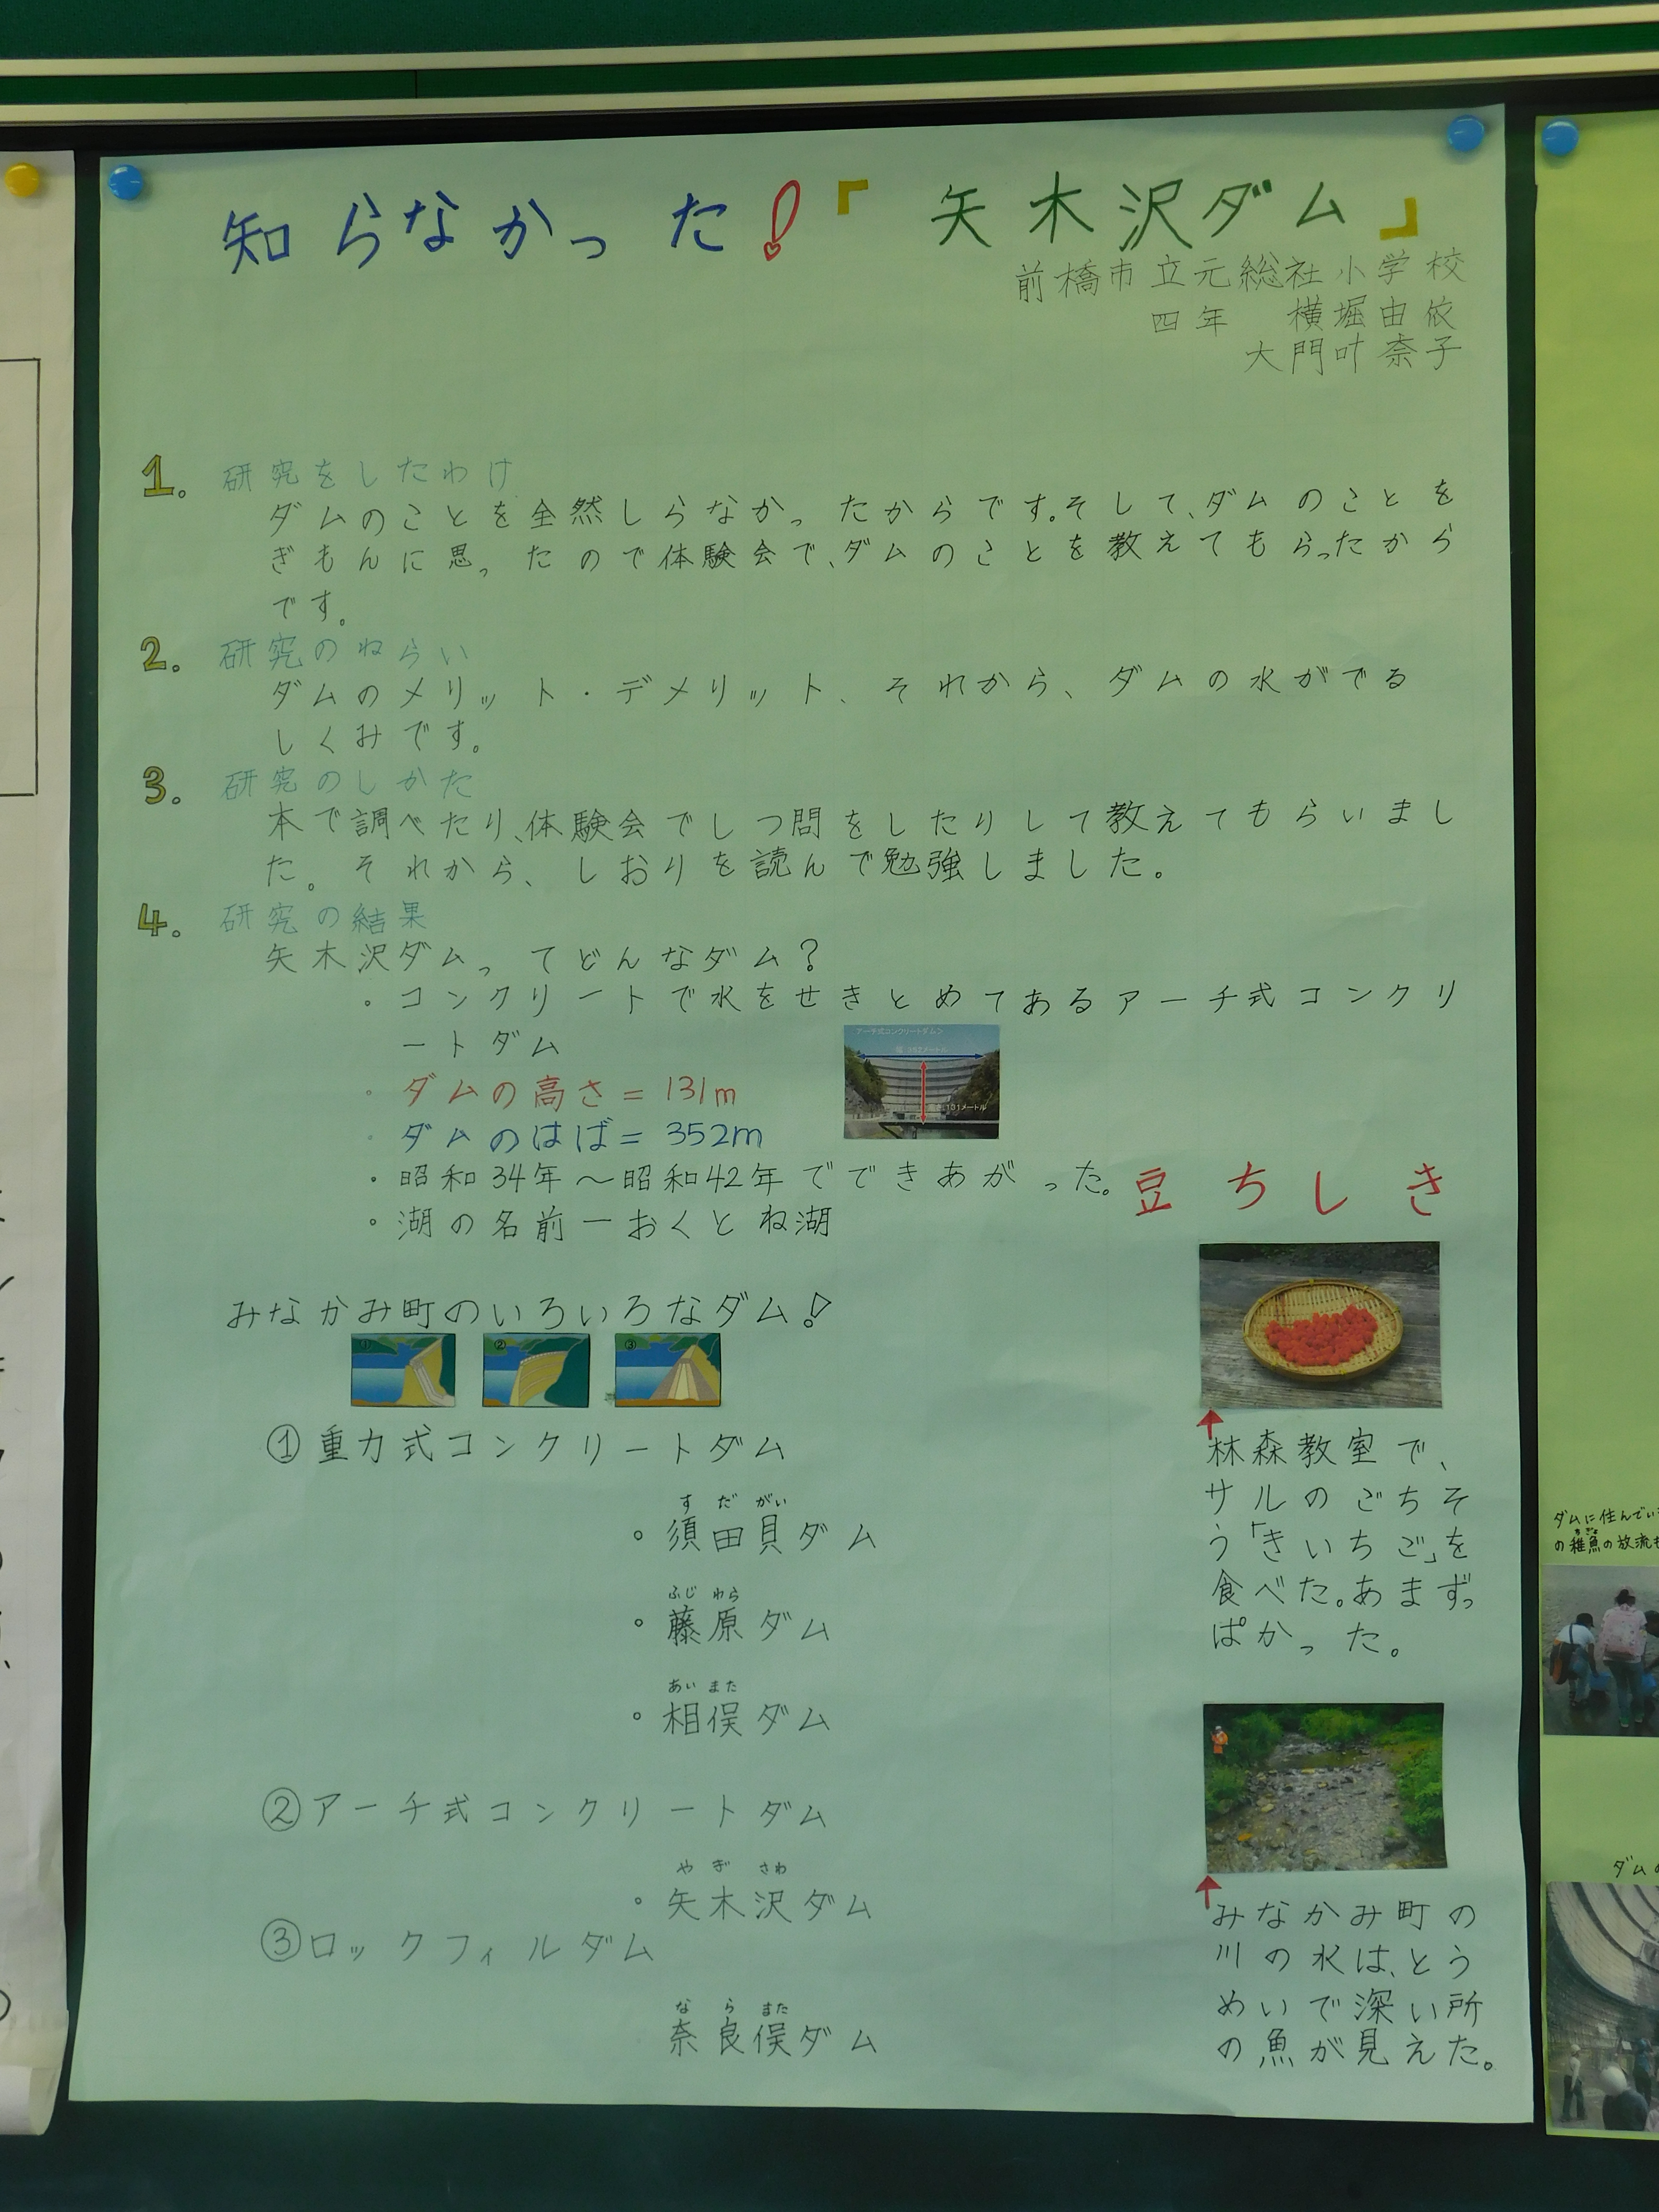 知らなかった!「矢木沢ダム」
前橋市立元総社小学校
四年 横堀由依
大門叶奈子
1. 研究をしたわけ
ダムのことを全然しらなかったからです。そして、ダムのことを
ぎもんに思ったので体験会で、ダムのことを教えてもらったから
です。
2. 研究のねらい
ダムのメリット・デメリット、それから、ダムの水がでる
しくみです。
3. 研究のしかた
本で調べたり、体験会でしつ問をしたりして教えてもらいまし
た。それから、しおりを読んで勉強しました。
4. 研究の結果
矢木沢ダムってどんなダム?
・コンクリートで水をせきとめてあるアーチ式コンクリ
ートダム
・ダムの高さ=131m
・ダムのはば=352m
・昭和34年〜昭和42年でできあがった。
・湖の名前ーおくとね湖
アーチ式コンクリートダム>
幅:352メートル
131メートル
みなかみ町のいろいろなダム!
① ② ③
①重力式コンクリートダム
すだがい
・須田貝ダム
ふじわら
・藤原ダム
あいまた
・相俣ダム
②アーチ式コンクリートダム
やぎさわ
・矢木沢ダム
③ロックフィルダム
ならまた
奈良俣ダム
豆ちしき
林森教室で、
サルのごちそ
う「きいちご」を
食べた。あまずっ
ぱかった。
みなかみ町の
川の水は、とう
めいで深い所
の魚が見えた。
ダムに住んでい
の稚魚の放流
ちぎょ
ダムの